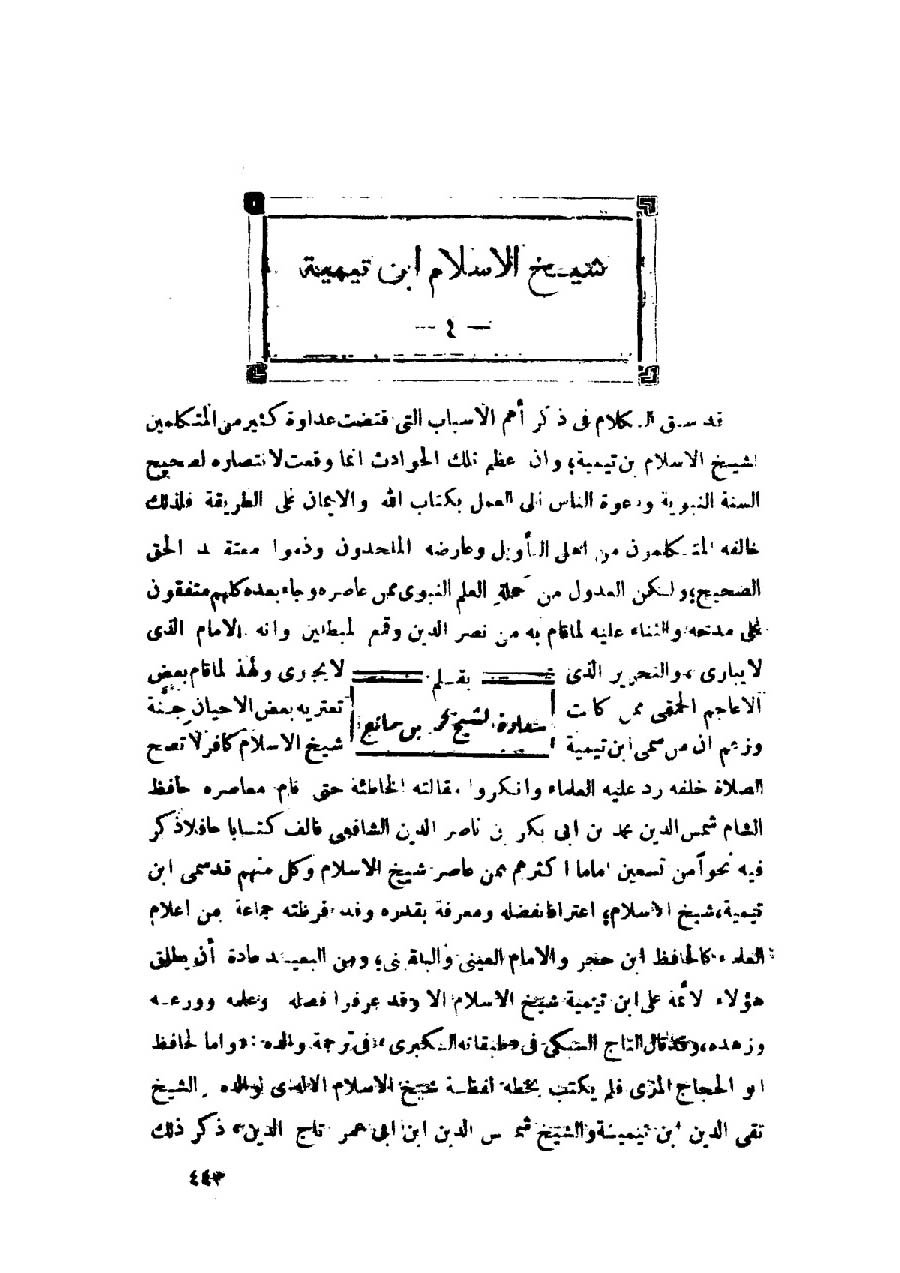 شيخ الاسلام ابن تيمية
— ٤ —
قد سبق الكلام فى ذكر أهم الاسباب التى قتضت عداوة كثير من المتكلمين
لشيخ الاسلام بن تيمية، وان عظم تلك الحوادث انما وقعت لانتصاره لصحيح
السنة النبوية ودعوة الناس الى العمل بكتاب الله والايمان على الطريقة فلذلك
خالفه المتكلمون من اهل التأويل وعارضه الملحدون وذموا معتقد الحق
الصحيح، ولكن العدول من حملة العلم النبوى ممن عاصره وجاء بعده كلهم متفقون
على مدحه والثناء عليه لماقام به من نصر الدين وقمع لمبطلين وانه الامام الذى
لايبارى، والنحرير الذى لايجارى ولهذ لماقام بعض
الاعاجم الحمقى ممن كانت تعتريه بعض الاحيان جنة
وزعم ان من سمى ابن تيمية شيخ الاسلام كافر لا تصح
بقلم
سعادة لشيخ محمد بن مانع
الصلاة خلفه رد عليه العلماء وانكروا مقالته الخاطئة حتى قام معاصره حافظ
الشام شمس الدين محمد بن ابى بكر بن ناصر الدين الشافعى فالف كتابا حافلا ذكر
فيه نحواً من تسعين اماما اكثرهم ممن عاصر شيخ الاسلام وكل منهم قد سمى ابن
تيمية، شيخ الاسلام، اعترافا بفضله ومعرفة بقدره وقد قرظته جماعة من اعلام
العلماء كالحافظ ابن حجر والامام العينى والبلقينى، ومن البعيد عادة أن يطلق
هؤلاء لائمة على ابن تيمية شيخ الاسلام الا وقد عرفوا فضله وعلمه وورعه
وزهده، وقد قال التاج السبكى فى «طبقاته الكبرى» فى ترجمة والده: «واما لحافظ
ابو الحجاج المزى فلم يكتب بخطه لفظة شيخ الاسلام الا له والشيخ
تقى الدين ابن تيمية والشيخ شمس الدين ابن ابى عمر تاج الدين» ذكر ذلك
٤٤٣